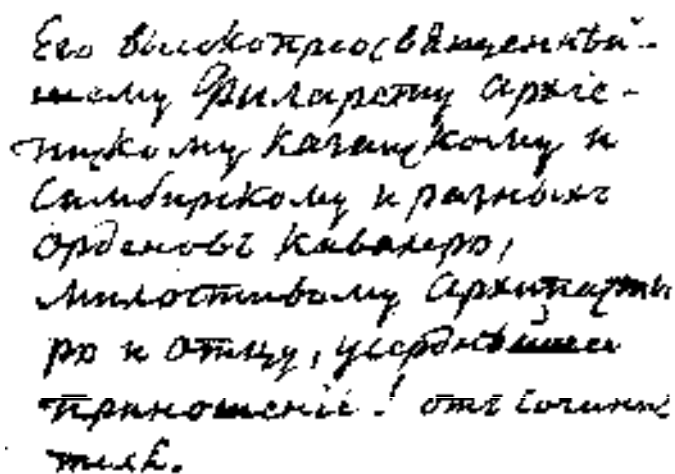 Его высокопреосвященнѣй-
шему Филарету Архіе-
пископу Казанскому и
Симбирскому и разныхъ
орденовъ кавалеру,
милостивому Архипасты
рю и Отцу, усерднѣйшее
приношеніе! отъ сочини
теля.